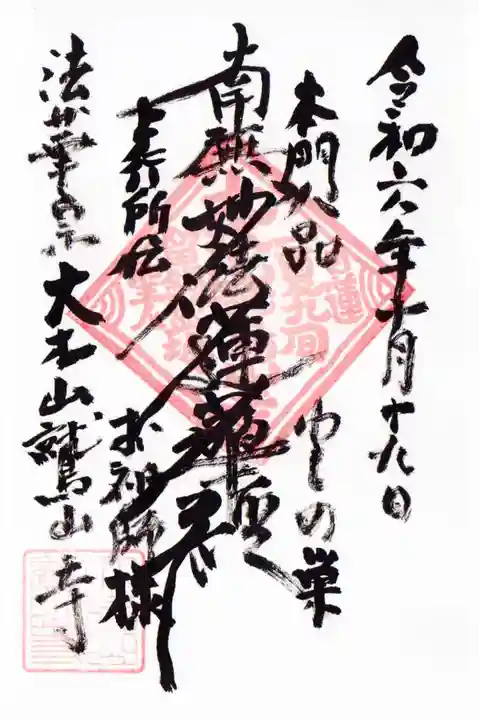 令和六年十月十九日
本門八品
わしの巣
南無妙法蓮華経
上行所伝
お祖師様
法華宗
大本山鷲山寺